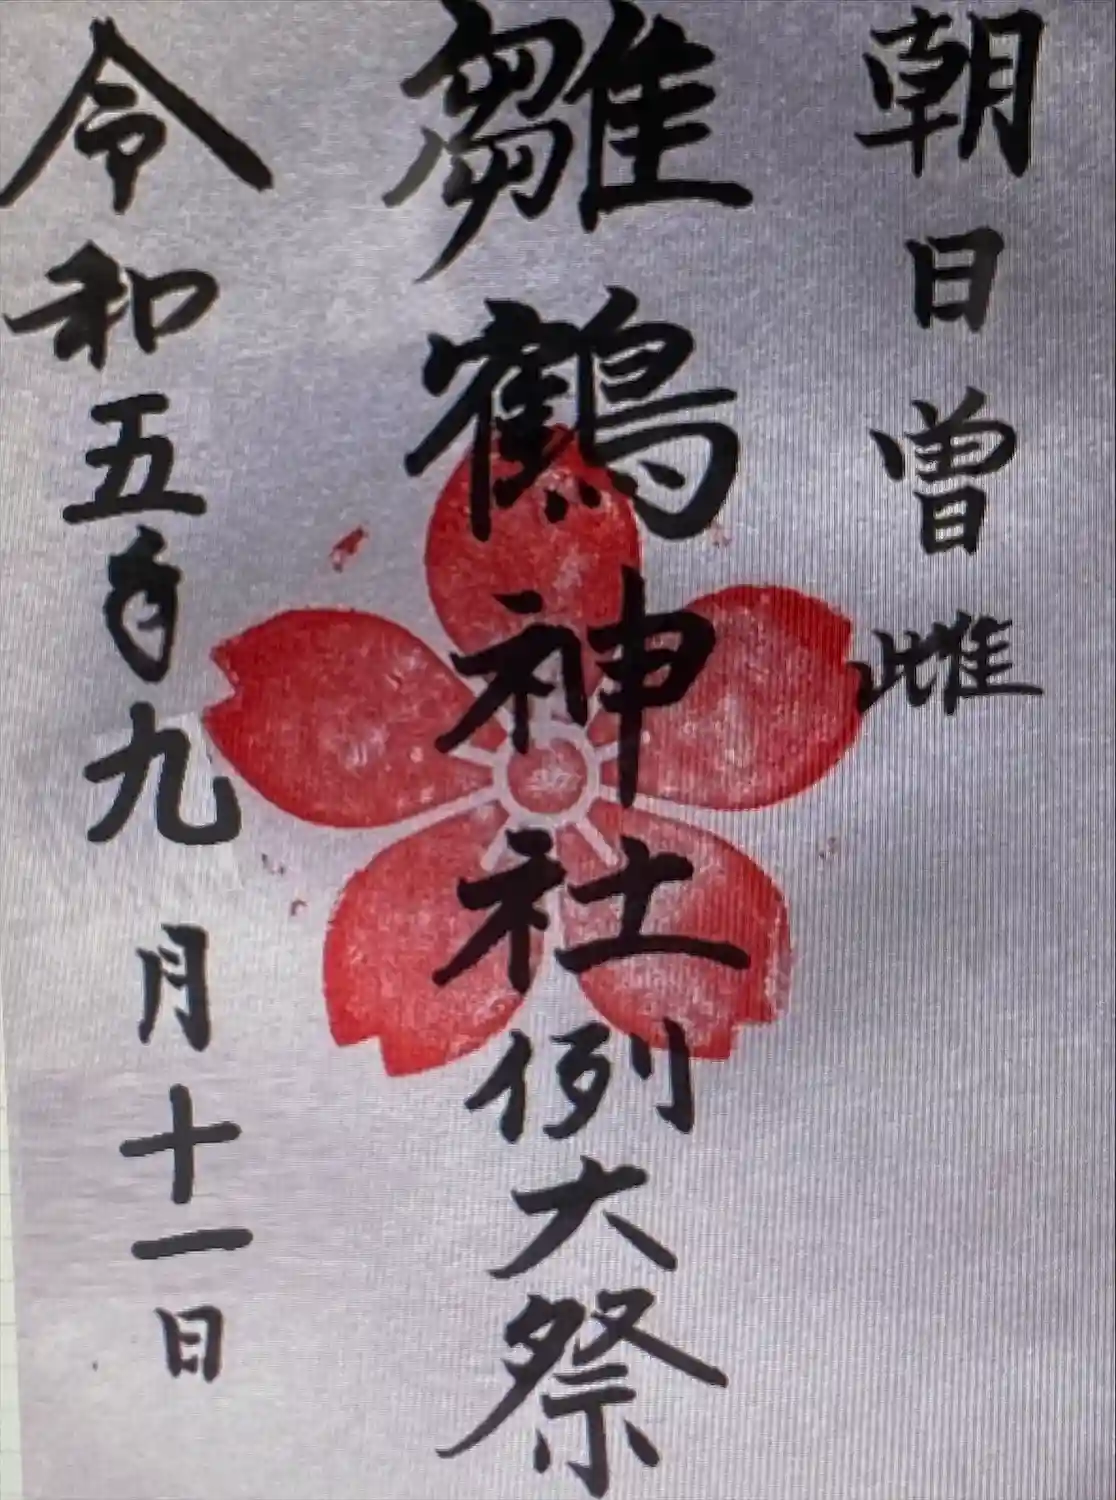 朝日曽雌
雛鶴神社例大祭
令和五年九月十一日